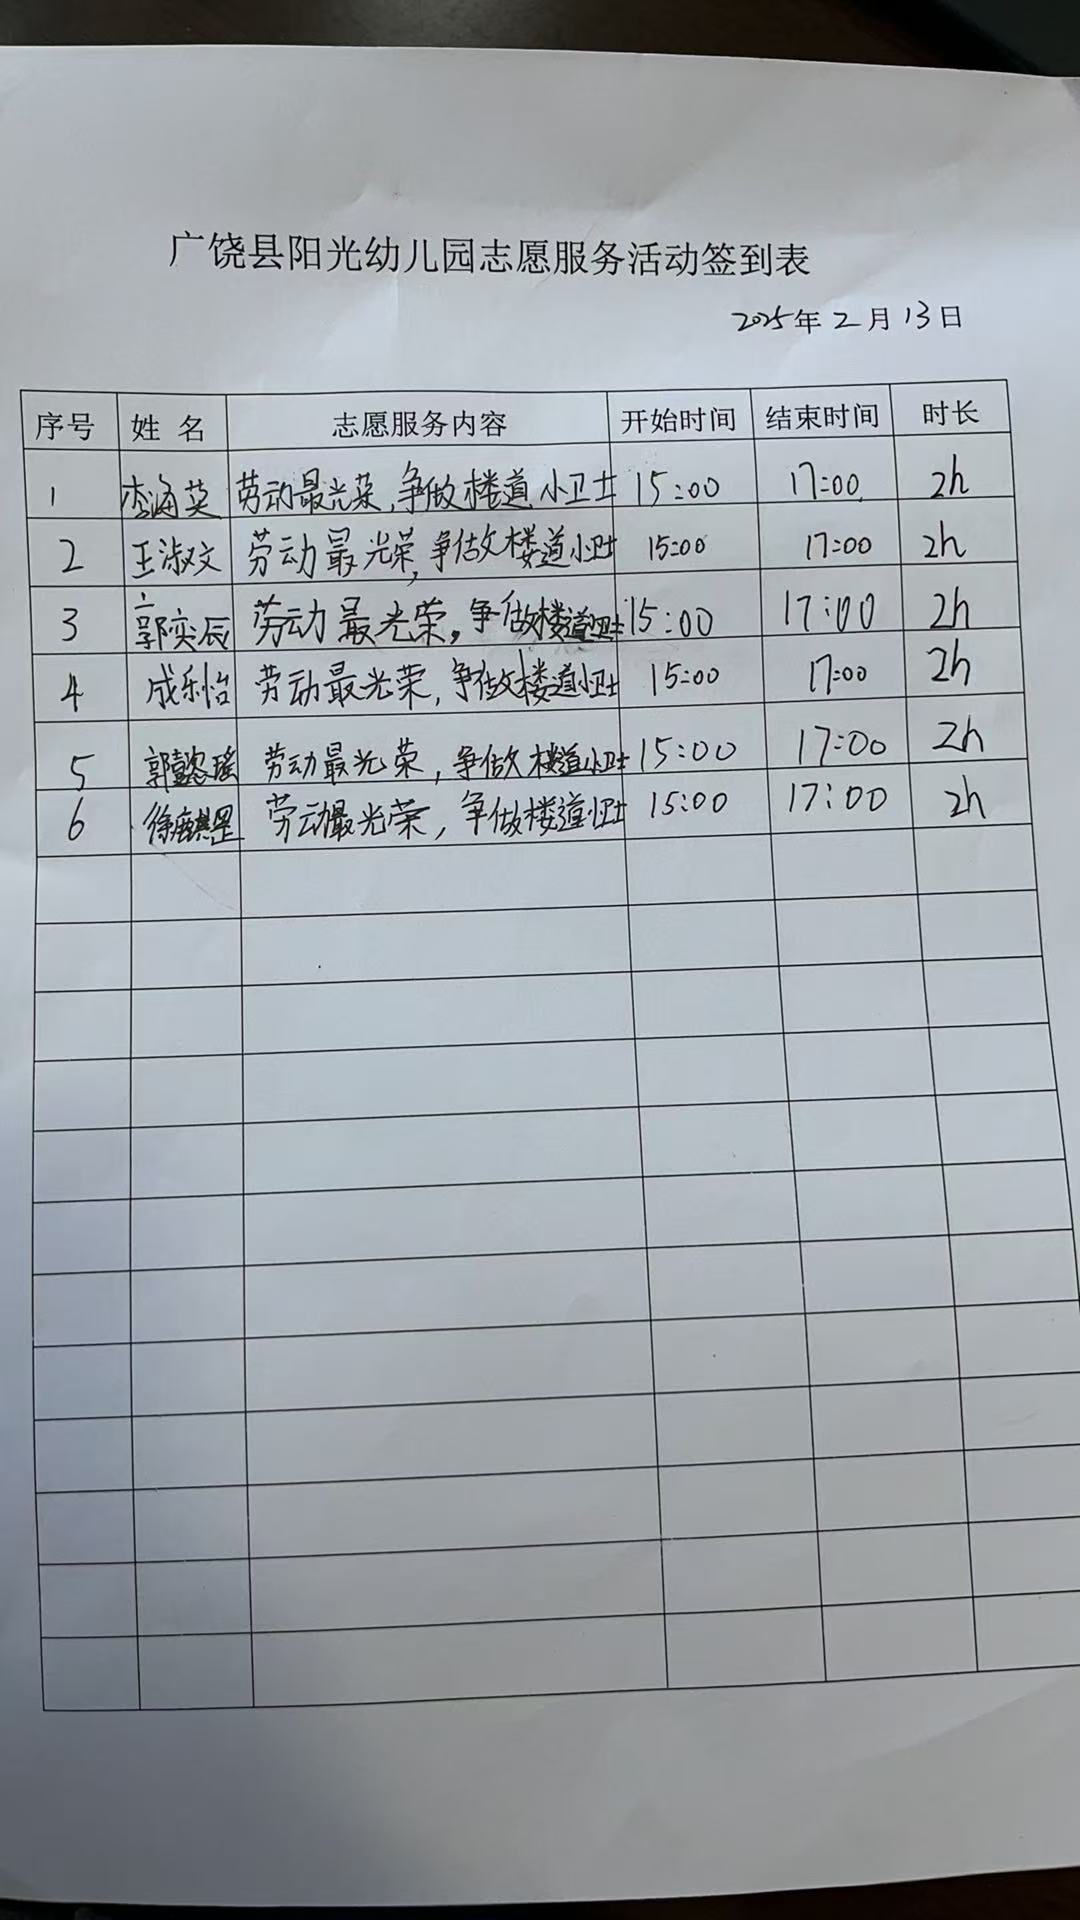 广饶县阳光幼儿园志愿服务活动签到表
2025年2月13日
序号 姓 名 志愿服务内容 开始时间 结束时间 时长
1 李海英 劳动最光荣,争做楼道小卫士 15:00 17:00 2h
2 王淑文 劳动最光荣,争做楼道小卫士 15:00 17:00 2h
3 郭奕辰 劳动最光荣,争做楼道小卫士 15:00 17:00 2h
4 成乐怡 劳动最光荣,争做楼道小卫士 15:00 17:00 2h
5 郭懿瑶 劳动最光荣,争做楼道小卫士 15:00 17:00 2h
6 徐麒罡 劳动最光荣,争做楼道小卫士 15:00 17:00 2h